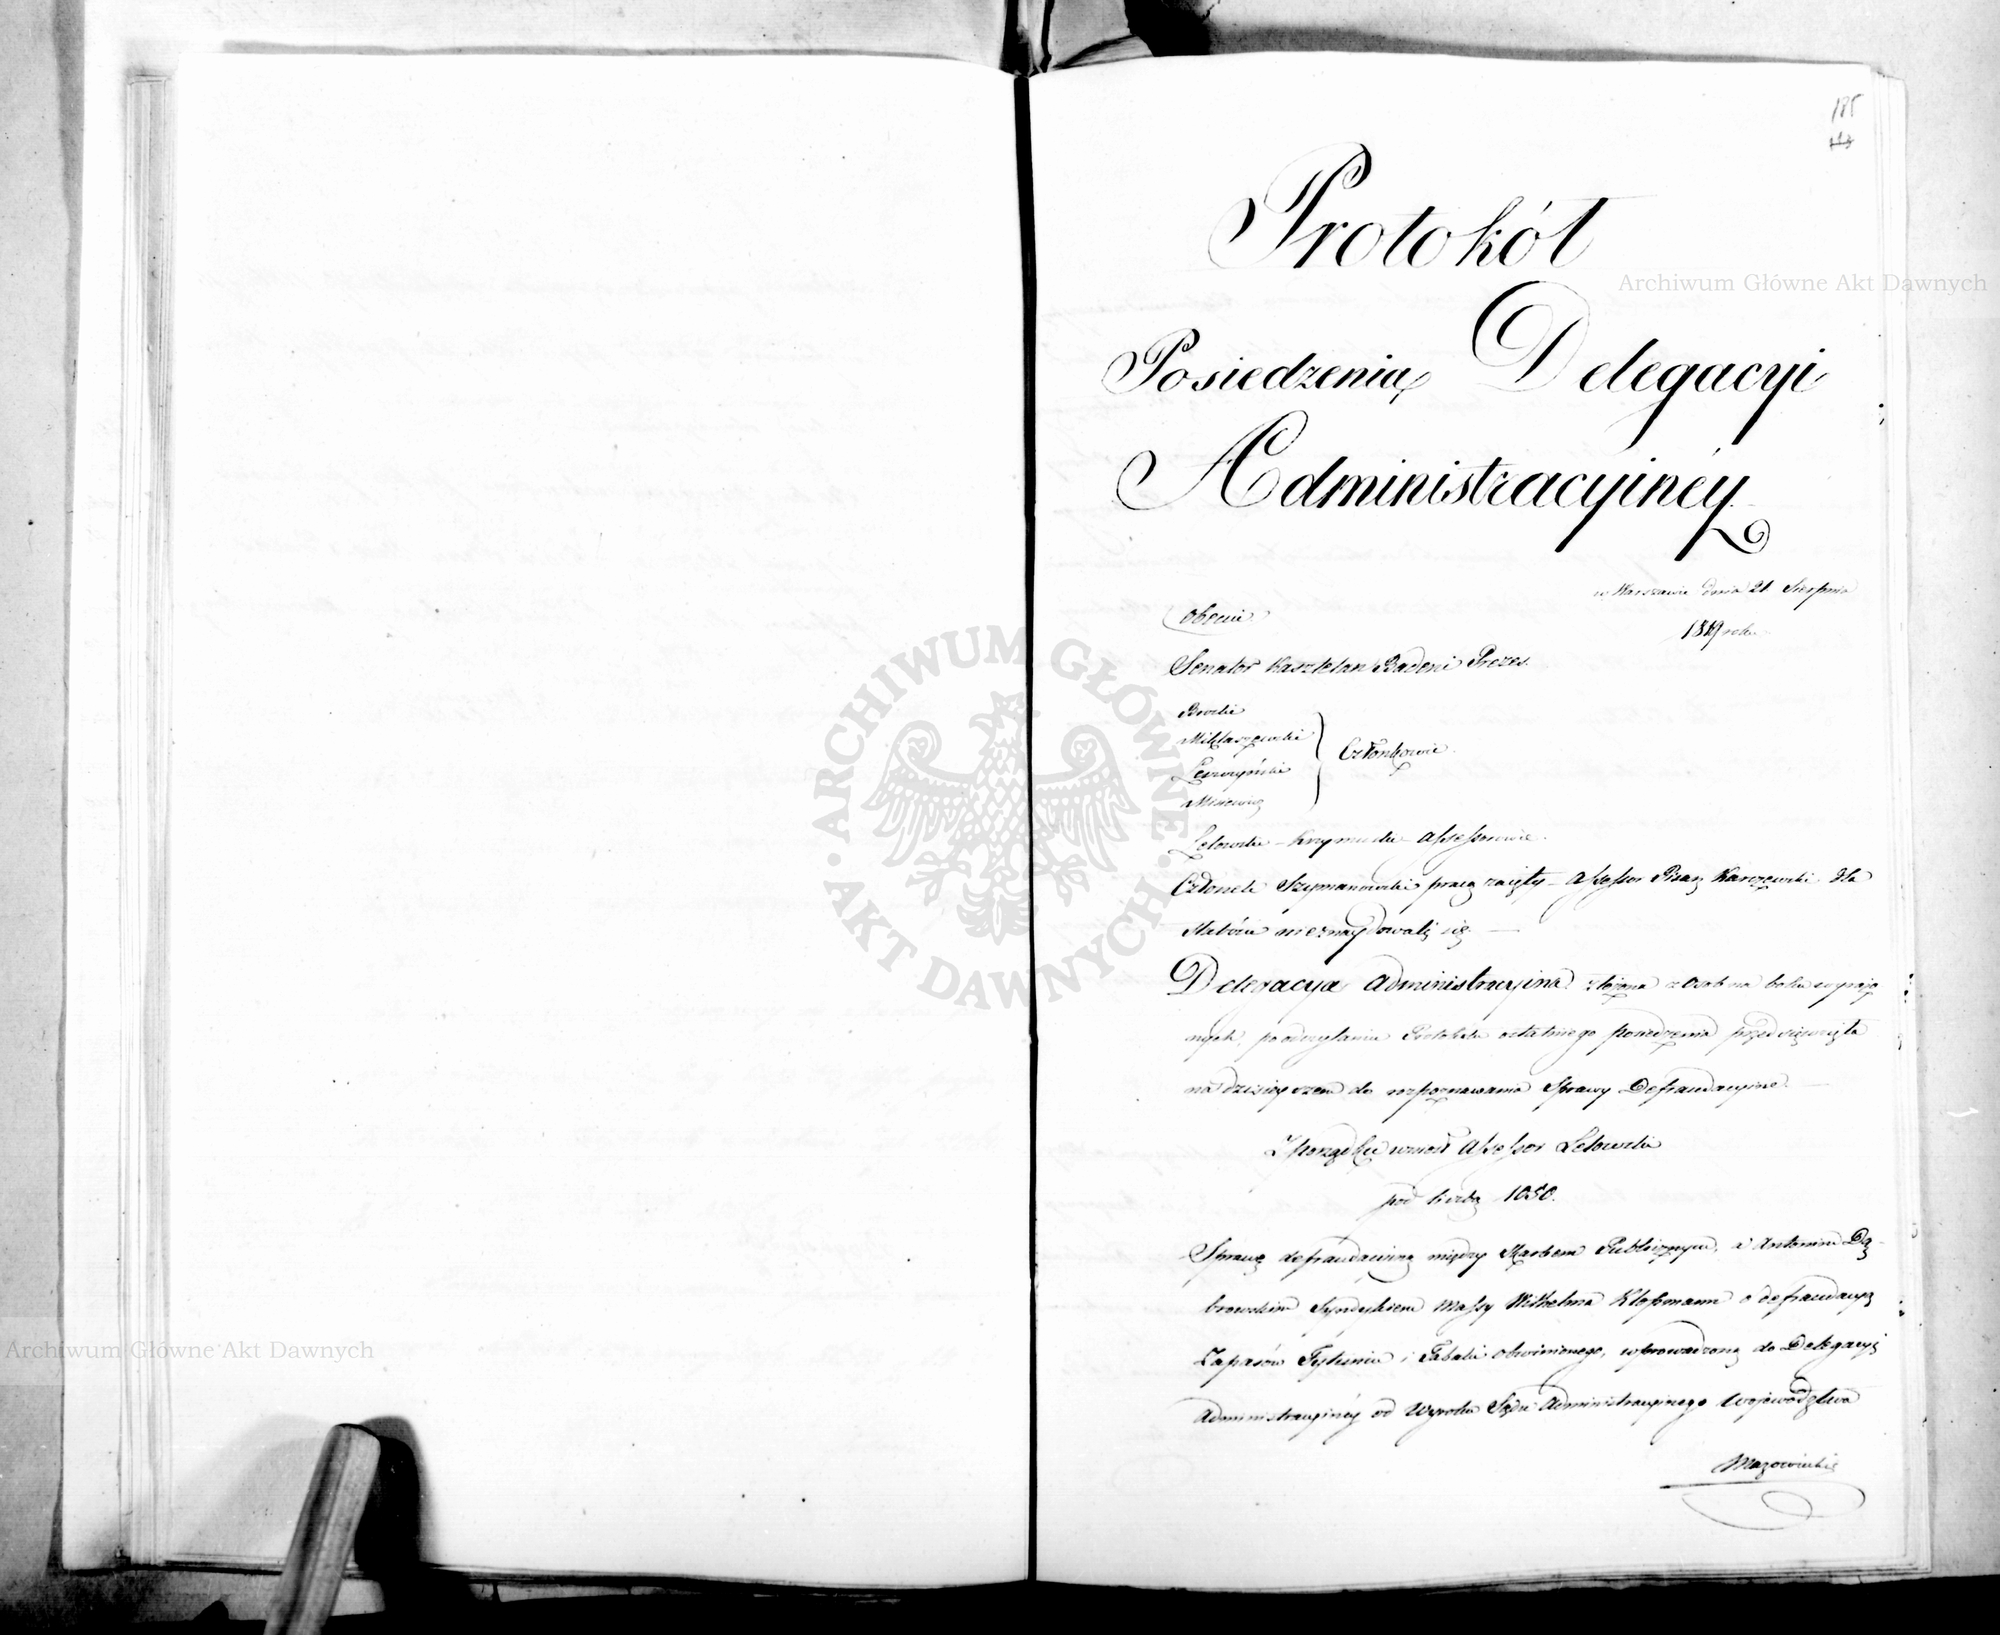 185
143
Protokół
Posiedzenia Delegacyi
Administracyinéy
w Warszawie dnia 21. Sierpnia
1819 roku
Obecni
Senator Kasztelan Badeni Prezes.
Miklaszewski
Leszczyński
Członkowie
Łętowski – Krzymuski – Assessorowie.
Członek Szymanowski pracą zaięty – Assessor Pisarz Karczewski dla
słabości nieznaydowali się. —
Delegacya Administracyina złożona z Osób na boku wyrażo
nych, po odczytaniu Protokułu ostatniego posiedzenia przedsięwzięła
na dzisieyszem do rozpoznawania Sprawy Defraudacyine. —
Z porządku wniósł Assessor Łętowski
pod liczbą 1050.
Sprawę defraudacyiną między Skarbem Publicznym, a Antonim Dą-
browskim Syndykiem Massy Wilhelma Klossmann o defraudacyą
Zapasów Tytuniu i Tabaki obwinionego, wprowadzoną do Delegacyi
Administracyinéy od Wyroku Sądu Administracyinego Województwa
Mazowieckie
Archiwum Główne Akt Dawnych
Archiwum Główne Akt Dawnych
ARCHIWUM GŁÓWNE AKT DAWNYCH